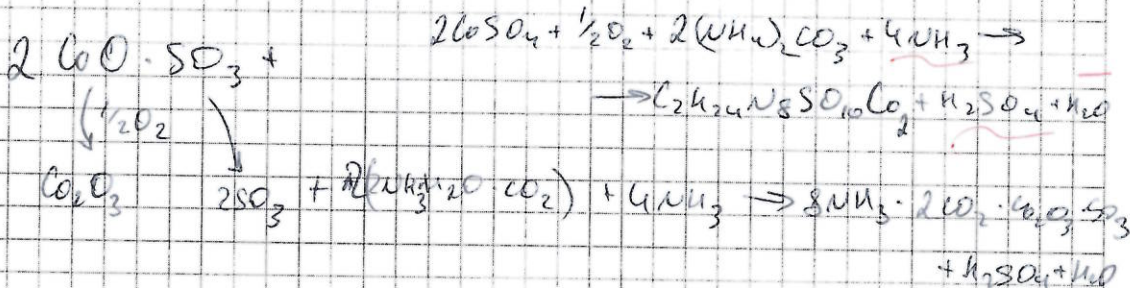 2CoSO₄ + ½O₂ + 2(NH₄)₂CO₃ + 4NH₃ →
2 CoO · SO₃ +
→ C₂H₂₄N₈SO₁₀Co₂ + H₂SO₄ + H₂O
½O₂
Co₂O₃ 2SO₃ + 2(2NH₃H₂O · CO₂) + 4NH₃ → 8NH₃ · 2CO₂ · Co₂O₃ · SO₃
+ H₂SO₄ + H₂O